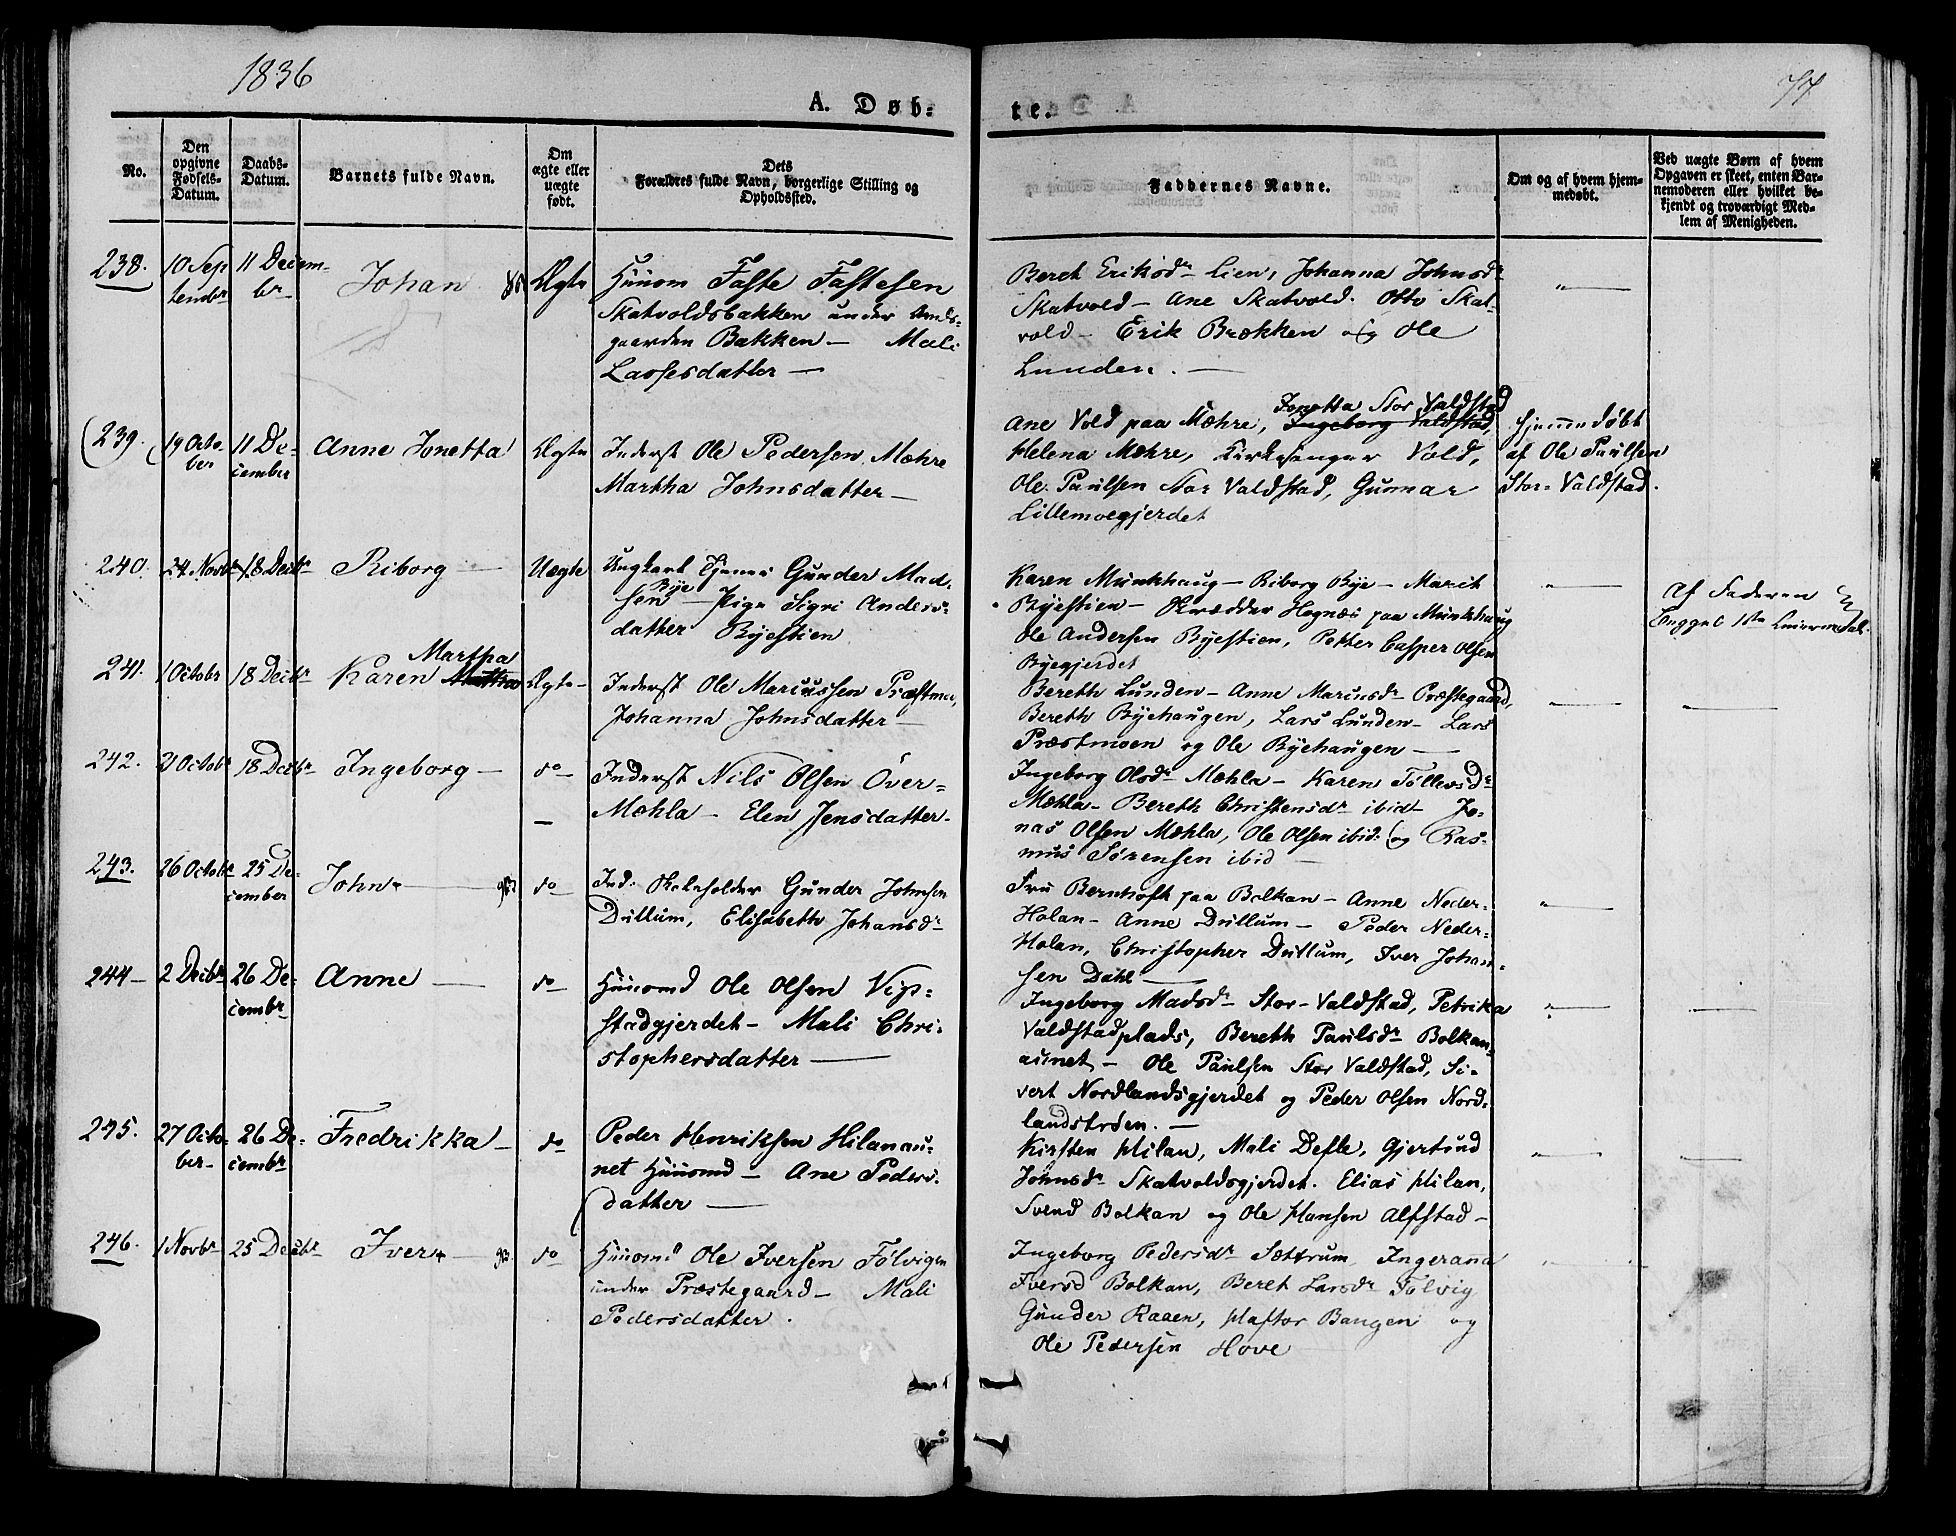 1836
77
A. Døb-
te.
No.
Den opgivne Fødsels-Datum.
Daabs-Datum.
Barnets fulde Navn.
Om ægte eller uægte født.
Dets Forældres fulde Navn, borgerlige Stilling og Opholdssted.
Faddernes Navne.
Om og af hvem hjem-medøbt.
Ved uægte Børn af hvem Opgaven er skeet, enten Bar-nemoderen eller hvilket be-kjendt og troværdigt Med-lem af Menigheden.
238. 10 Sep 11 Decem- Johan Ægte Huusm Faste Fastesen
tembr br
Skatvoldsbakken under
gaarden Bakken — Mali
Lassesdatter —
Beret Eriksdr Lien, Johanna Johnsdr
Skatvold — Ane Skatvold. Otto Skat-
vold — Erik Brækken og Ole
Lunden. —
239. 19 Octo- 11 De- Anne Jonetta Ægte Inderst Ole Pedersen Mæhre
ber cember
Martha Johnsdatter —
Jonetta Stor Valdstad
Ane Vold paa Mæhre, Ingeborg Valdstad,
Helena Mæhre, Kirkesanger Vold,
Ole Paulsen Stor Valdstad, Gunnar
Lillemoegjerdet
Hjemmedøbt
af Ole Paulsen
Stor-Valdstad.
240. 24 Novbr 18 Decbr Riborg — Uægte Ungkarl Tjener Gunder Mad-
Bye
sen — Pige Sigri Anders-
datter Byestien
Karen Munkhaug — Riborg Bye — Marit
Byestien — Skrædder paa Munkhaug
Ole Andersen Byestien, Petter Casper Olsen
Byegjerdet
Af Faderen
241. 1 Octobr 18 Decbr Karen Martha Ægte — Inderst Ole Marcussen Præstmoe,
Johanna Johnsdatter —
Bereth Lunden — Anne Marcusdr Præstegaard,
Bereth Byehaugen, Lars Lunden — Lars
Præstmoen og Ole Byehaugen —
242. 21 Octobr 18 Decbr Ingeborg — do — Inderst Nils Olsen Över-
Mæhla — Elen Jensdatter —
Ingeborg Olsdr Mæhla — Karen Töllevsdr
Mæhla — Bereth Christensdr ibid — Jo-
nas Olsen Mæhla, Ole Olsen ibid. og Ras-
mus Sörensen ibid —
243. 26 Octobr 25 De- John — do — Ind. Skoleholder Gunder Johnsen
cember
Dullum, Elisabeth Johansdr
Fru Bernhoft paa Bolkan — Anne Neder-
Holan — Anne Dullum — Peder Neder-
Holan, Christopher Dullum, Iver Johan-
sen Dahl —
244 — 2 Decbr 26 De- Anne — do — Huusmd Ole Olsen Vips-
cembr
stadgjerdet — Mali Chri-
stophersdatter —
Ingeborg Madsdr Stor-Valdstad, Petrika
Valdstadplads, Bereth Paulsdr Bolkan-
aunet — Ole Paulsen Stor Valdstad, Si-
vert Nordlandsgjerdet og Peder Olsen Nord-
landströen. —
245. 27 Octo- 26 De- Fredrikka — do Peder Henriksen Hilanau-
ber — cembr
net Huusmd — Ane Peders-
datter —
Kirsten Hilan, Mali Defle, Gjertrud
Johnsdr Skatvoldsgjerdet. Elias Hilan,
Svend Bolkan og Ole Hansen Alfstad —
246. 1 Novbr 25 Decbr Iver — do Huusmd Ole Iversen Fölvigen
under Præstegaard — Mali
Pedersdatter.
Ingeborg Pedersdr Sættrum Ingeranna
Iversd Bolkan, Beret Larsdr Fölvig
Gunder Raaen, Hastor Bangen og
Ole Pedersen Hove